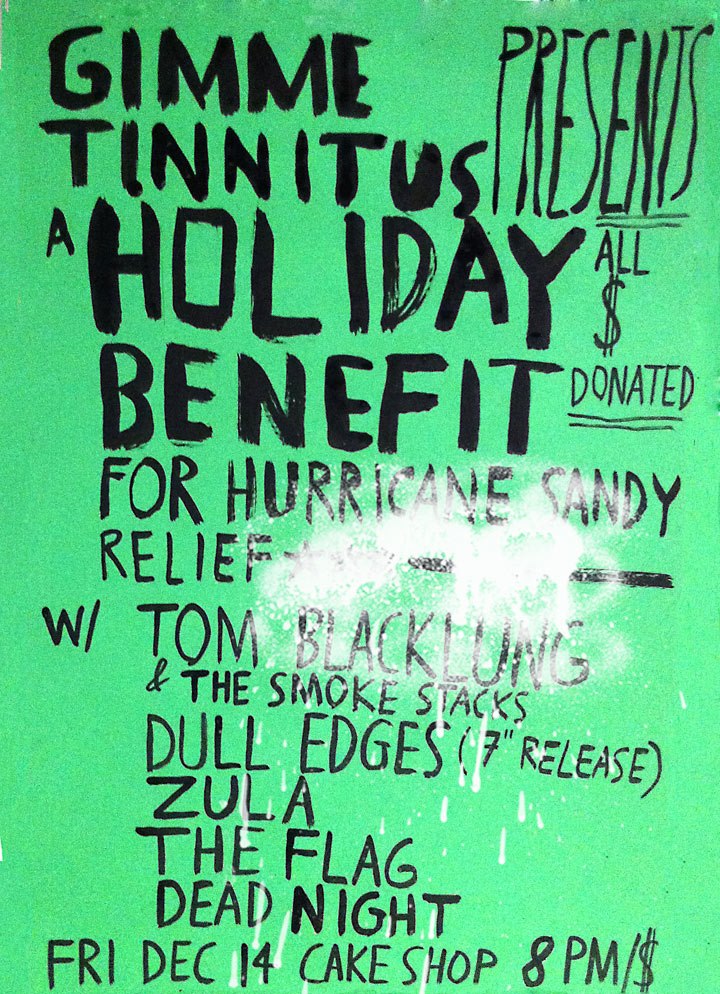 GIMME
TINNITUS PRESENTS
A HOLIDAY
BENEFIT
ALL
$
DONATED
FOR HURRICANE SANDY
RELIEF
W/ TOM BLACKLUNG
& THE SMOKE STACKS
DULL EDGES (7" RELEASE)
ZULA
THE FLAG
DEAD NIGHT
FRI DEC 14 CAKE SHOP 8 PM/$